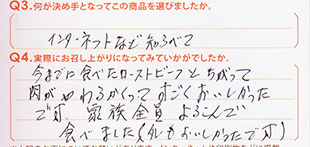 Q3.何が決め手となってこの商品を選びましたか。
インターネットなど知らべて
Q4.実際にお召し上がりになってみていかがでしたか。
今までに食べたローストビーフとちがって
肉がやわるかくってすごくおいしかった
です。家族全員よろこんで
食べました(タレもおいしかったです)